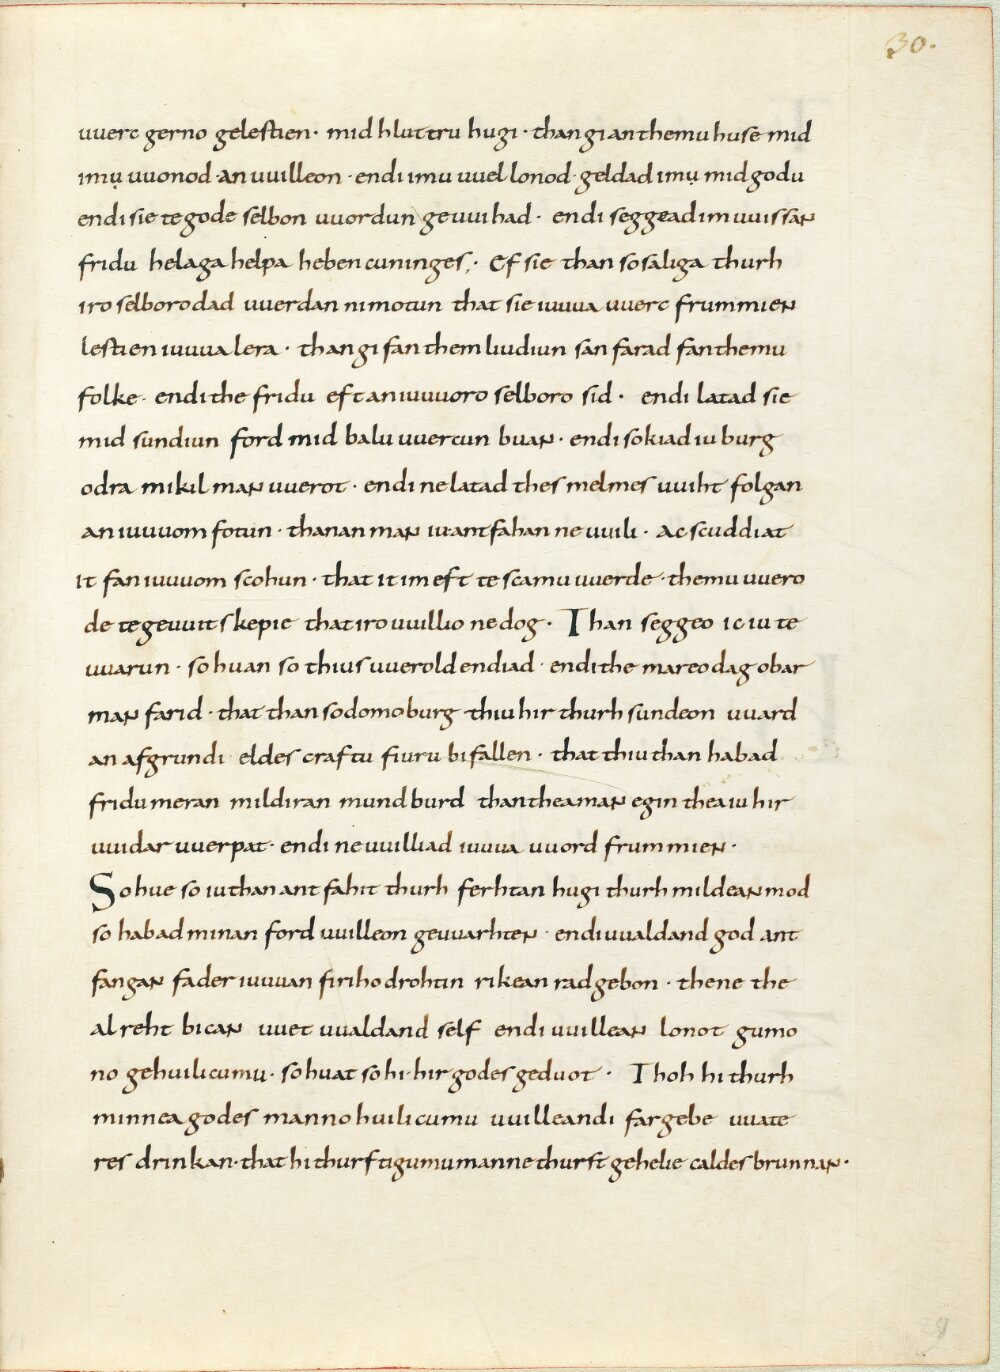 30.
uuerc gerno gelestien · mid hluttru hugi · than gi an themu huse mid
imu uuonod · an uuilleon · endi imu uuel lonod · geldad imu mid godu
endi sie te gode selbon uuordun geuuihad · endi seggead im uuissan
fridu helaga helpa heben cuninges ;· Ef sie than so saliga thurh
iro selboro dad uuerdan ni motun that sie iuuua uuerc frummien
lestien iuuua lera · than gi fan them liudiun san farad fan themu
folke · endi the fridu eft an iuuuoro selboro sid · endi latad sie
mid sundiun ford mid balu uuercun buan · endi sokiad iu burg
odra mikil man uuerot · endi ne latad thes melmes uuiht folgan
an iuuuom fotun · thanan man iu antfahan ne uuili · ac scuddiat
it fan iuuuom scohun · that it im eft te scamu uuerde · themu uuero
de te geuuitskepie that iro uuillio ne dog · Than seggeo ic iu te
uuarun · so huan so thius uuerold endiad · endi the mareo dag obar
man farid · that than sodomoburg thiu hir thurh sundeon uuard
an afgrundi eldes craftu fiuru bifallen · that thiu than habad
fridu meran mildiran mundburd than thea man egin thea iu hir
uuidar uuerpat · endi ne uuilliad iuuua uuord frummien ·
So hue so iu than antfahit thurh ferhtan hugi thurh mildean mod
so habad minan ford uuilleon geuuarhten · endi uualdand god ant
fangan fader iuuuan firiho drohtin rikean radgebon · thene the
al reht bican uuet uualdand self endi uuillean lonot gumo
no gehuilicumu · so huat so hi · hir godes geduot · Thoh hi thurh
minnea godes manno huilicumu uuilleandi fargebe uuate
res drinkan · that hi thurftigumu manne thurst gehelie caldes brunnan ·
29